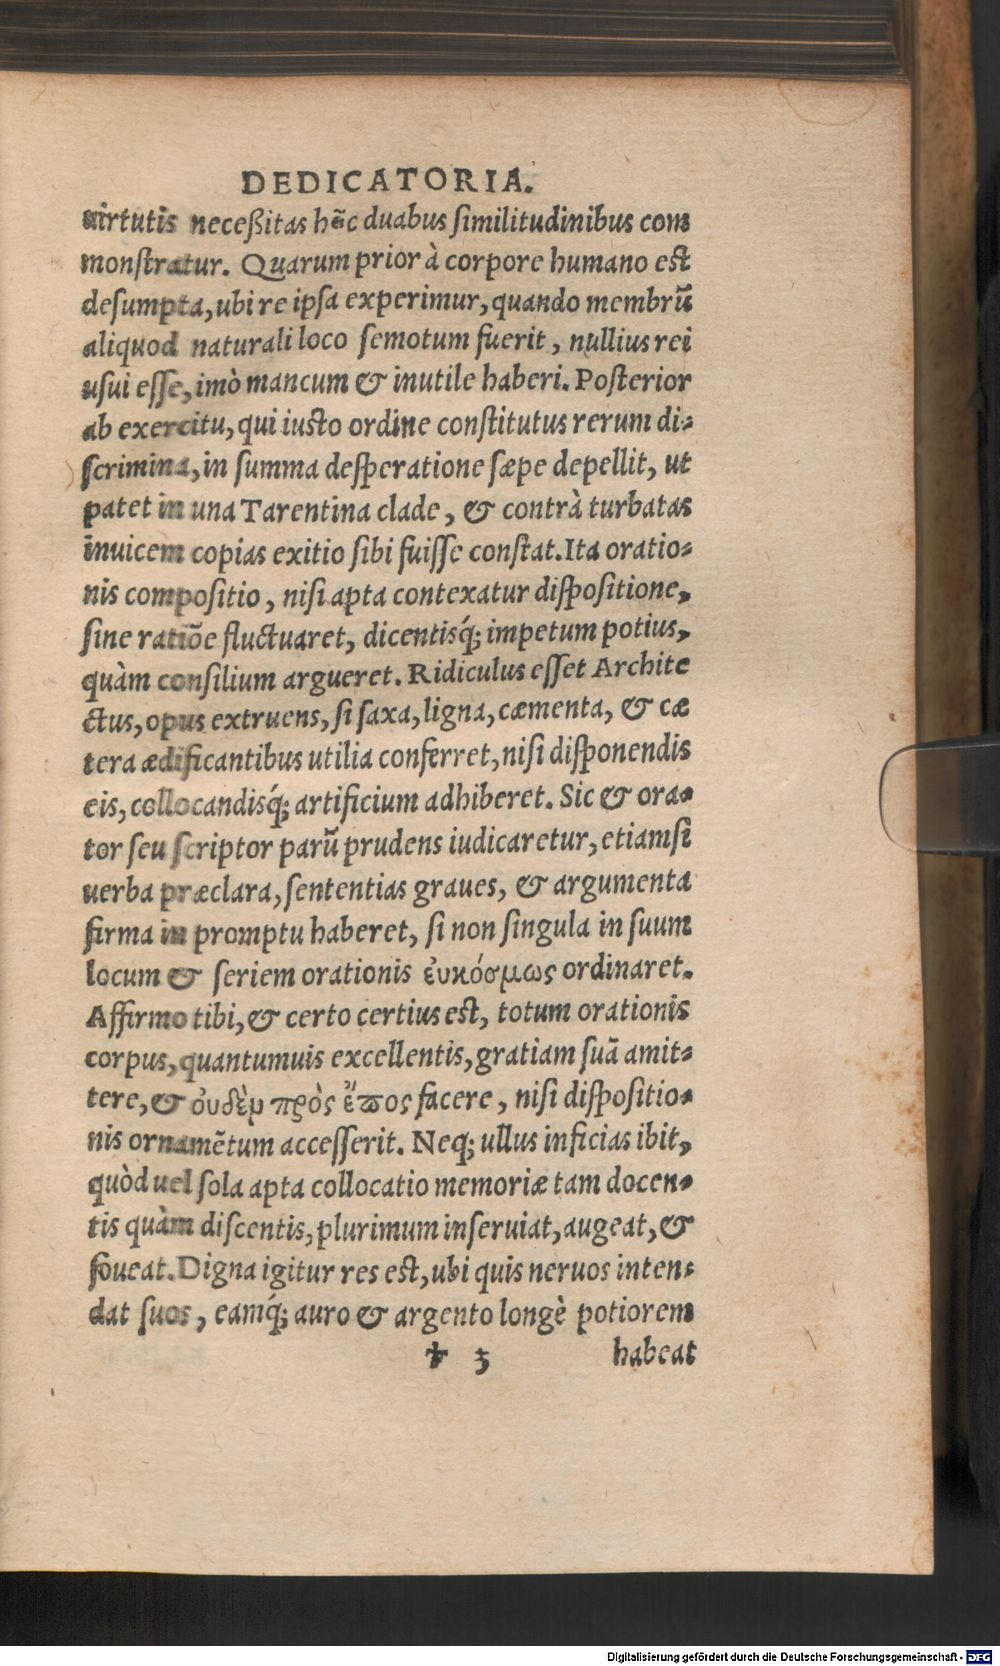 DEDICATORIA.
uirtutis neceßitas hẽc duabus ſimilitudinibus com
monſtratur. Quarum prior à corpore humano eſt
deſumpta, ubi re ipſa experimur, quando membrũ
aliquod naturali loco ſemotum fuerit, nullius rei
uſui eſſe, imò mancum & inutile haberi. Poſterior
ab exercitu, qui iusto ordine conſtitutus rerum di⸗
ſcrimina, in ſumma deſperatione ſæpe depellit, ut
patet in una Tarentina clade, & contrà turbatas
inuicem copias exitio ſibi fuiſſe conſtat. Ita oratio⸗
nis compoſitio, niſi apta contexatur diſpoſitione,
ſine ratiõe fluctuaret, dicentisq́; impetum potius,
quàm conſilium argueret. Ridiculus eſſet Archite
ctus, opus extruens, ſi ſaxa, ligna, cæmenta, & cæ
tera ædificantibus utilia conferret, niſi diſponendis
eis, collocandisq́; artificium adhiberet. Sic & ora⸗
tor ſeu ſcriptor parũ prudens iudicaretur, etiamſi
uerba præclara, ſententias graues, & argumenta
firma in promptu haberet, ſi non ſingula in ſuum
locum & ſeriem orationis ἐυκόσμως ordinaret.
Affirmo tibi, & certo certius eſt, totum orationis
corpus, quantumuis excellentis, gratiam ſuã amit⸗
tere, & ὀυδὲμ πρὸς ἔπος facere, niſi diſpoſitio⸗
nis ornamẽtum acceſſerit. Neq; ullus inficias ibit,
quòd uel ſola apta collocatio memoriæ tam docen⸗
tis quàm diſcentis, plurimum inſeruiat, augeat, &
foueat. Digna igitur res eſt, ubi quis neruos inten⸗
dat ſuos, eamq́; auro & argento longè potiorem
✝ 3 habeat
Digitalisierung gefördert durch die Deutsche Forschungsgemeinschaft - DFG